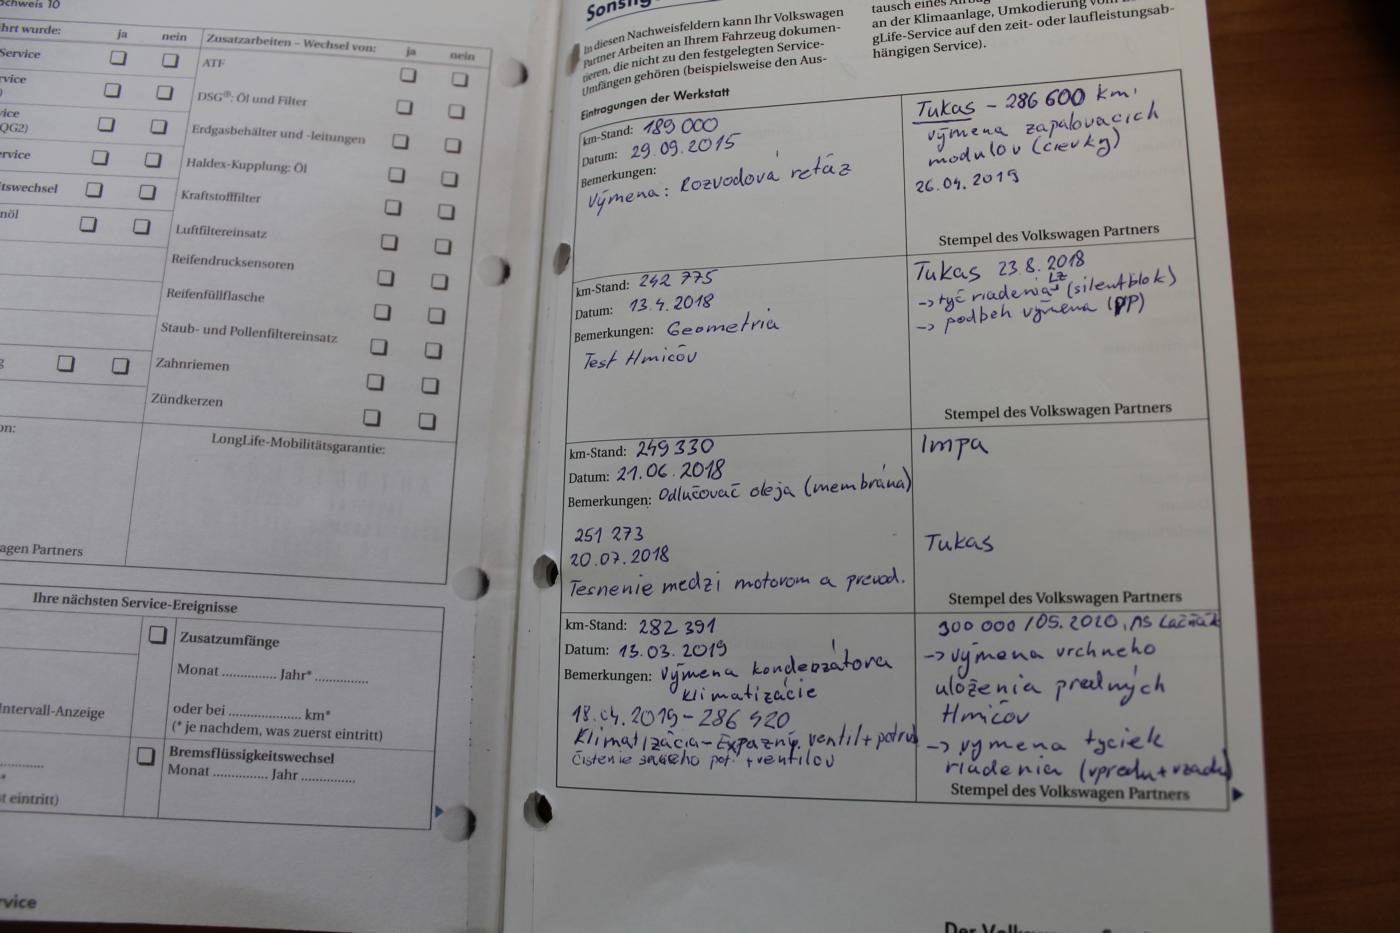 chweis 10
hrt wurde:
ja
nein
Service
vice
vice
QG2)
ervice
tswechsel
nöl
on:
agen Partners
Zusatzarbeiten – Wechsel von:
ja
nein
ATF
DSG®: Öl und Filter
Erdgasbehälter und -leitungen
Haldex-Kupplung: Öl
Kraftstofffilter
Luftfiltereinsatz
Reifendrucksensoren
Reifenfüllflasche
Staub- und Pollenfiltereinsatz
Zahnriemen
Zündkerzen
LongLife-Mobilitätsgarantie:
Ihre nächsten Service-Ereignisse
Intervall-Anzeige
t eintritt)
Zusatzumfänge
Monat ............... Jahr* ..............
oder bei .................... km*
(* je nachdem, was zuerst eintritt)
Bremsflüssigkeitswechsel
Monat ............... Jahr ...............
rvice
Sonstig
In diesen Nachweisfeldern kann Ihr Volkswagen
Partner Arbeiten an Ihrem Fahrzeug dokumen-
tieren, die nicht zu den festgelegten Service-
Umfängen gehören (beispielsweise den Aus-
tausch eines
an der Klimaanlage, Umkodierung
gLife-Service auf den zeit- oder laufleistungsab-
hängigen Service).
Eintragungen der Werkstatt
km-Stand: 189 000
Datum: 29.09.2015
Bemerkungen:
Výmena: Rozvodová reťaz
Tukas – 286 600 km.
výmena zapaľovacích
modulov (cievky)
26.04.2019
Stempel des Volkswagen Partners
km-Stand: 242 775
Datum: 13.4.2018
Bemerkungen: Geometria
Test tlmičov
Tukas 23.8.2018
LZ
→ tyč riadenia (silentblok)
→ podbeh výmena (PP)
Stempel des Volkswagen Partners
km-Stand: 249 330
Datum: 21.06.2018
Bemerkungen: Odlučovač oleja (membrána)
251 273
20.07.2018
Tesnenie medzi motorom a prevod.
Impa
Tukas
Stempel des Volkswagen Partners
km-Stand: 282 391
Datum: 13.03.2019
Bemerkungen: Výmena kondenzátora
klimatizácie
18.04.2019 – 286 420
Klimatizácia – Expazný ventil +
čistenie + ventilov
300 000 / 05.2020, AS
→ výmena vrchneho
uloženia predných
tlmičov
→ vymena tyciek
riadenia (vpredu + vzadu)
Stempel des Volkswagen Partners